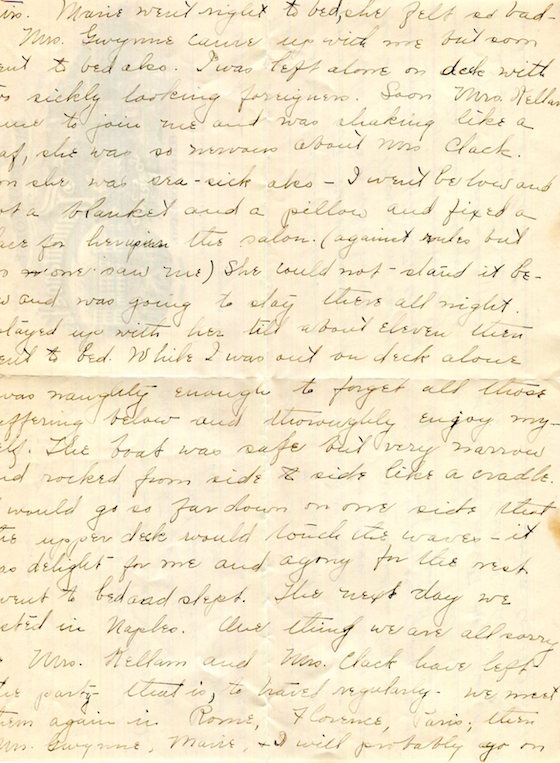 urs. Marie went right to bed, she felt so bad.
Mrs. Gwynne came up with me but soon
ent to bed also. I was left alone on deck with
sickly looking foreigners. Soon Mrs. Kellam
ame to join me and was shaking like a
af, she was so nervous about Mrs Clack.
on she was sea-sick also - I went below and
ot a blanket and a pillow and fixed a
lace for her in the salon. (against rules but
no one saw me) She could not stand it be-
w and was going to stay there all night.
stayed up with her till about eleven then
ent to bed. While I was out on deck alone
was naughty enough to forget all those
uffering below and thoroughly enjoy my-
elf. The boat was safe but very narrow
nd rocked from side to side like a cradle.
would go so far down on one side that
he upper deck would touch the waves - it
as delight for me and agony for the rest
went to bed and slept. The next day we
ested in Naples. One thing we are all sorry
Mrs. Kellam and Mrs. Clack have left
the party - that is, to travel regularly - we meet
them again in Rome, Florence, Paris; then
Mrs. Gwynne, Marie, + I will probably go on